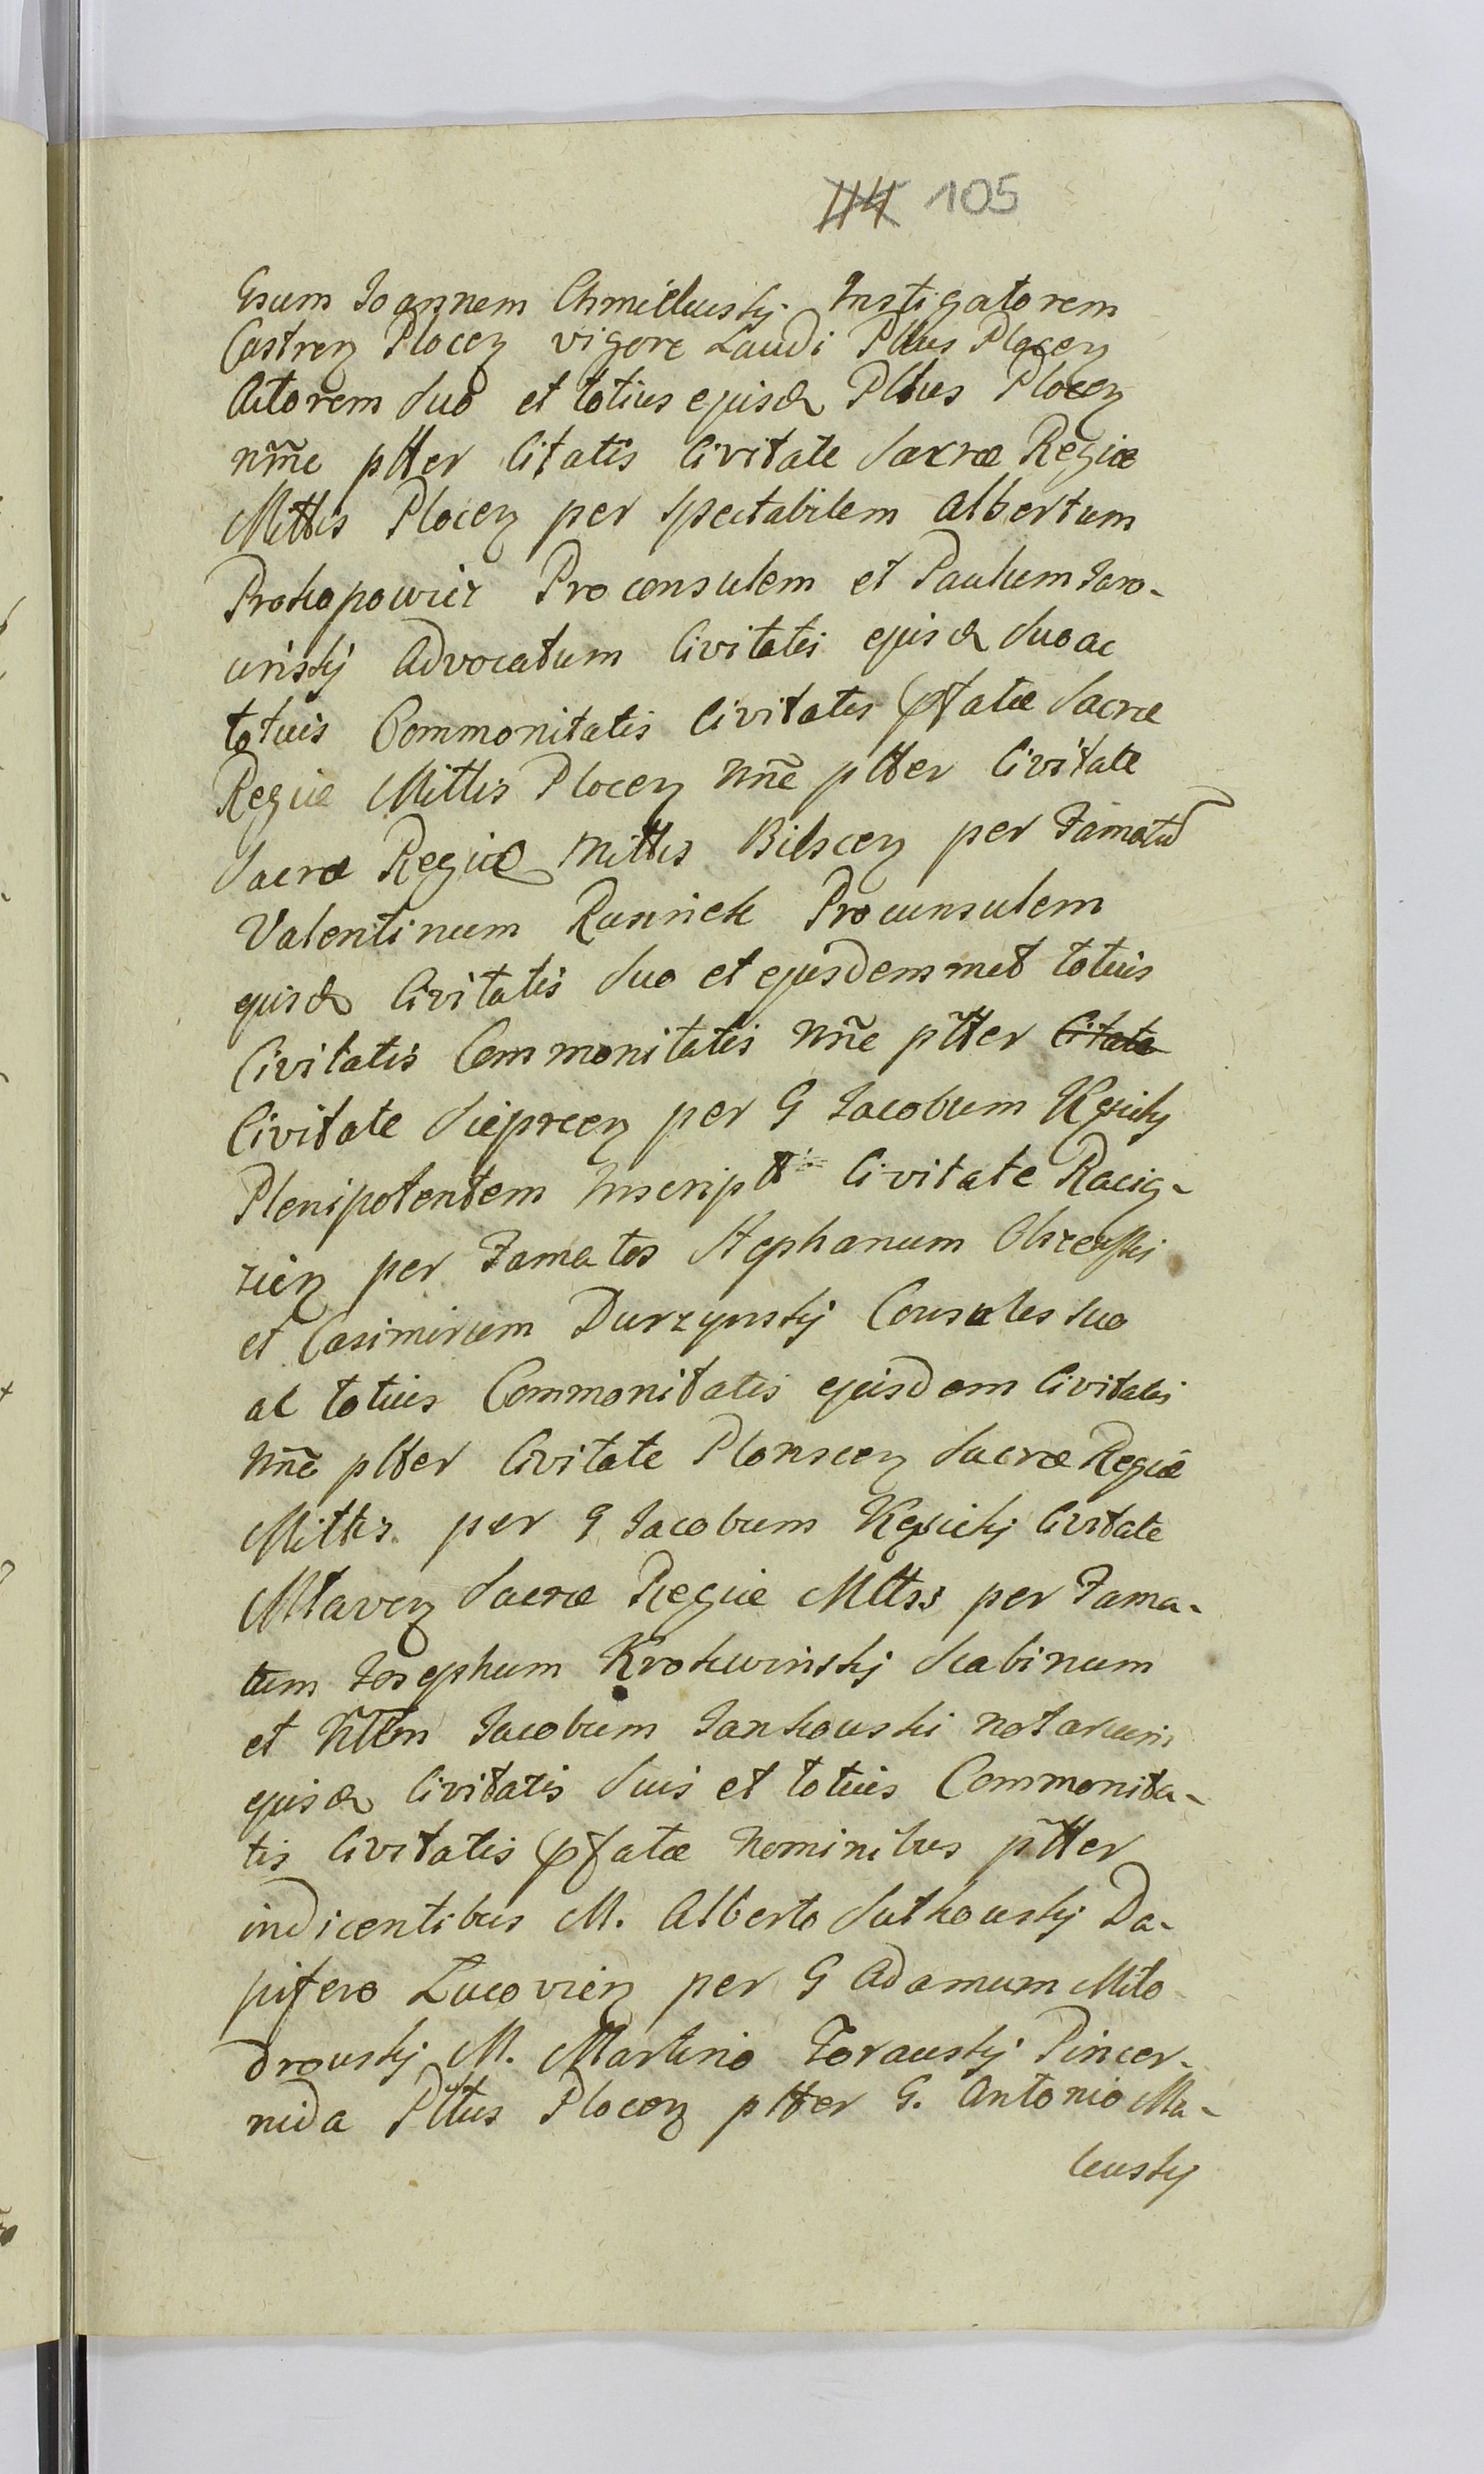 114 105
Gsum Joannem Chmieluskj Instigatorem
Castren Plocen vigore Laudi Pltus Plocen
Actorem suo et totius ejusd Pltus Plocen
nm̃e ptter Citatis Civitate Sacræ Regiæ
Mttis Plocen per Spectabilem Albertum
Prokopowicz Proconsulem et Paulum Jaro-
cinskj Advocatum Civitatis ejusd suo ac
totius Commonitatis Civitatis pfatæ Sacræ
Regiæ Mttis Plocen nñe ptter Civitate
Sacræ Regiæ Mttis Bilscen per Famatū
Valentinum Rusniek Procunsulem
ejusd Civitatis suo et ejusdemmet totius
Civitatis Commonitatis nñe ptter Citate
Civitate Sieprcen per G Jacobum Kęsickj
Plenipotentem Inscript Civitate Racią-
zien per Famatos Stephanum Olszeski
et Casimirum Durzynskj Consules suo
ac totius Commonitatis ejusdem Civitatis
nñe ptter Civitate Plonscen Sacræ Regiæ
Mttis per G Jacobum Kęsickj Civitate
Mlaven Sacræ Regiæ Mttis per Fama-
tum Josephum Krokwinskj Scabinum
et Jacobum Jankouski notarium
ejusd Civitatis suis et totius Commonita-
tis Civitatis pfatæ Nominibus ptter
indicentibus M. Alberto Sutkouskj Da-
pifero Lucovien per G Adamum Mło
drouskj M. Martino Zorauskj Pincer-
nida Pttus Plocen ptter G. Antonio Ma-
leuskj